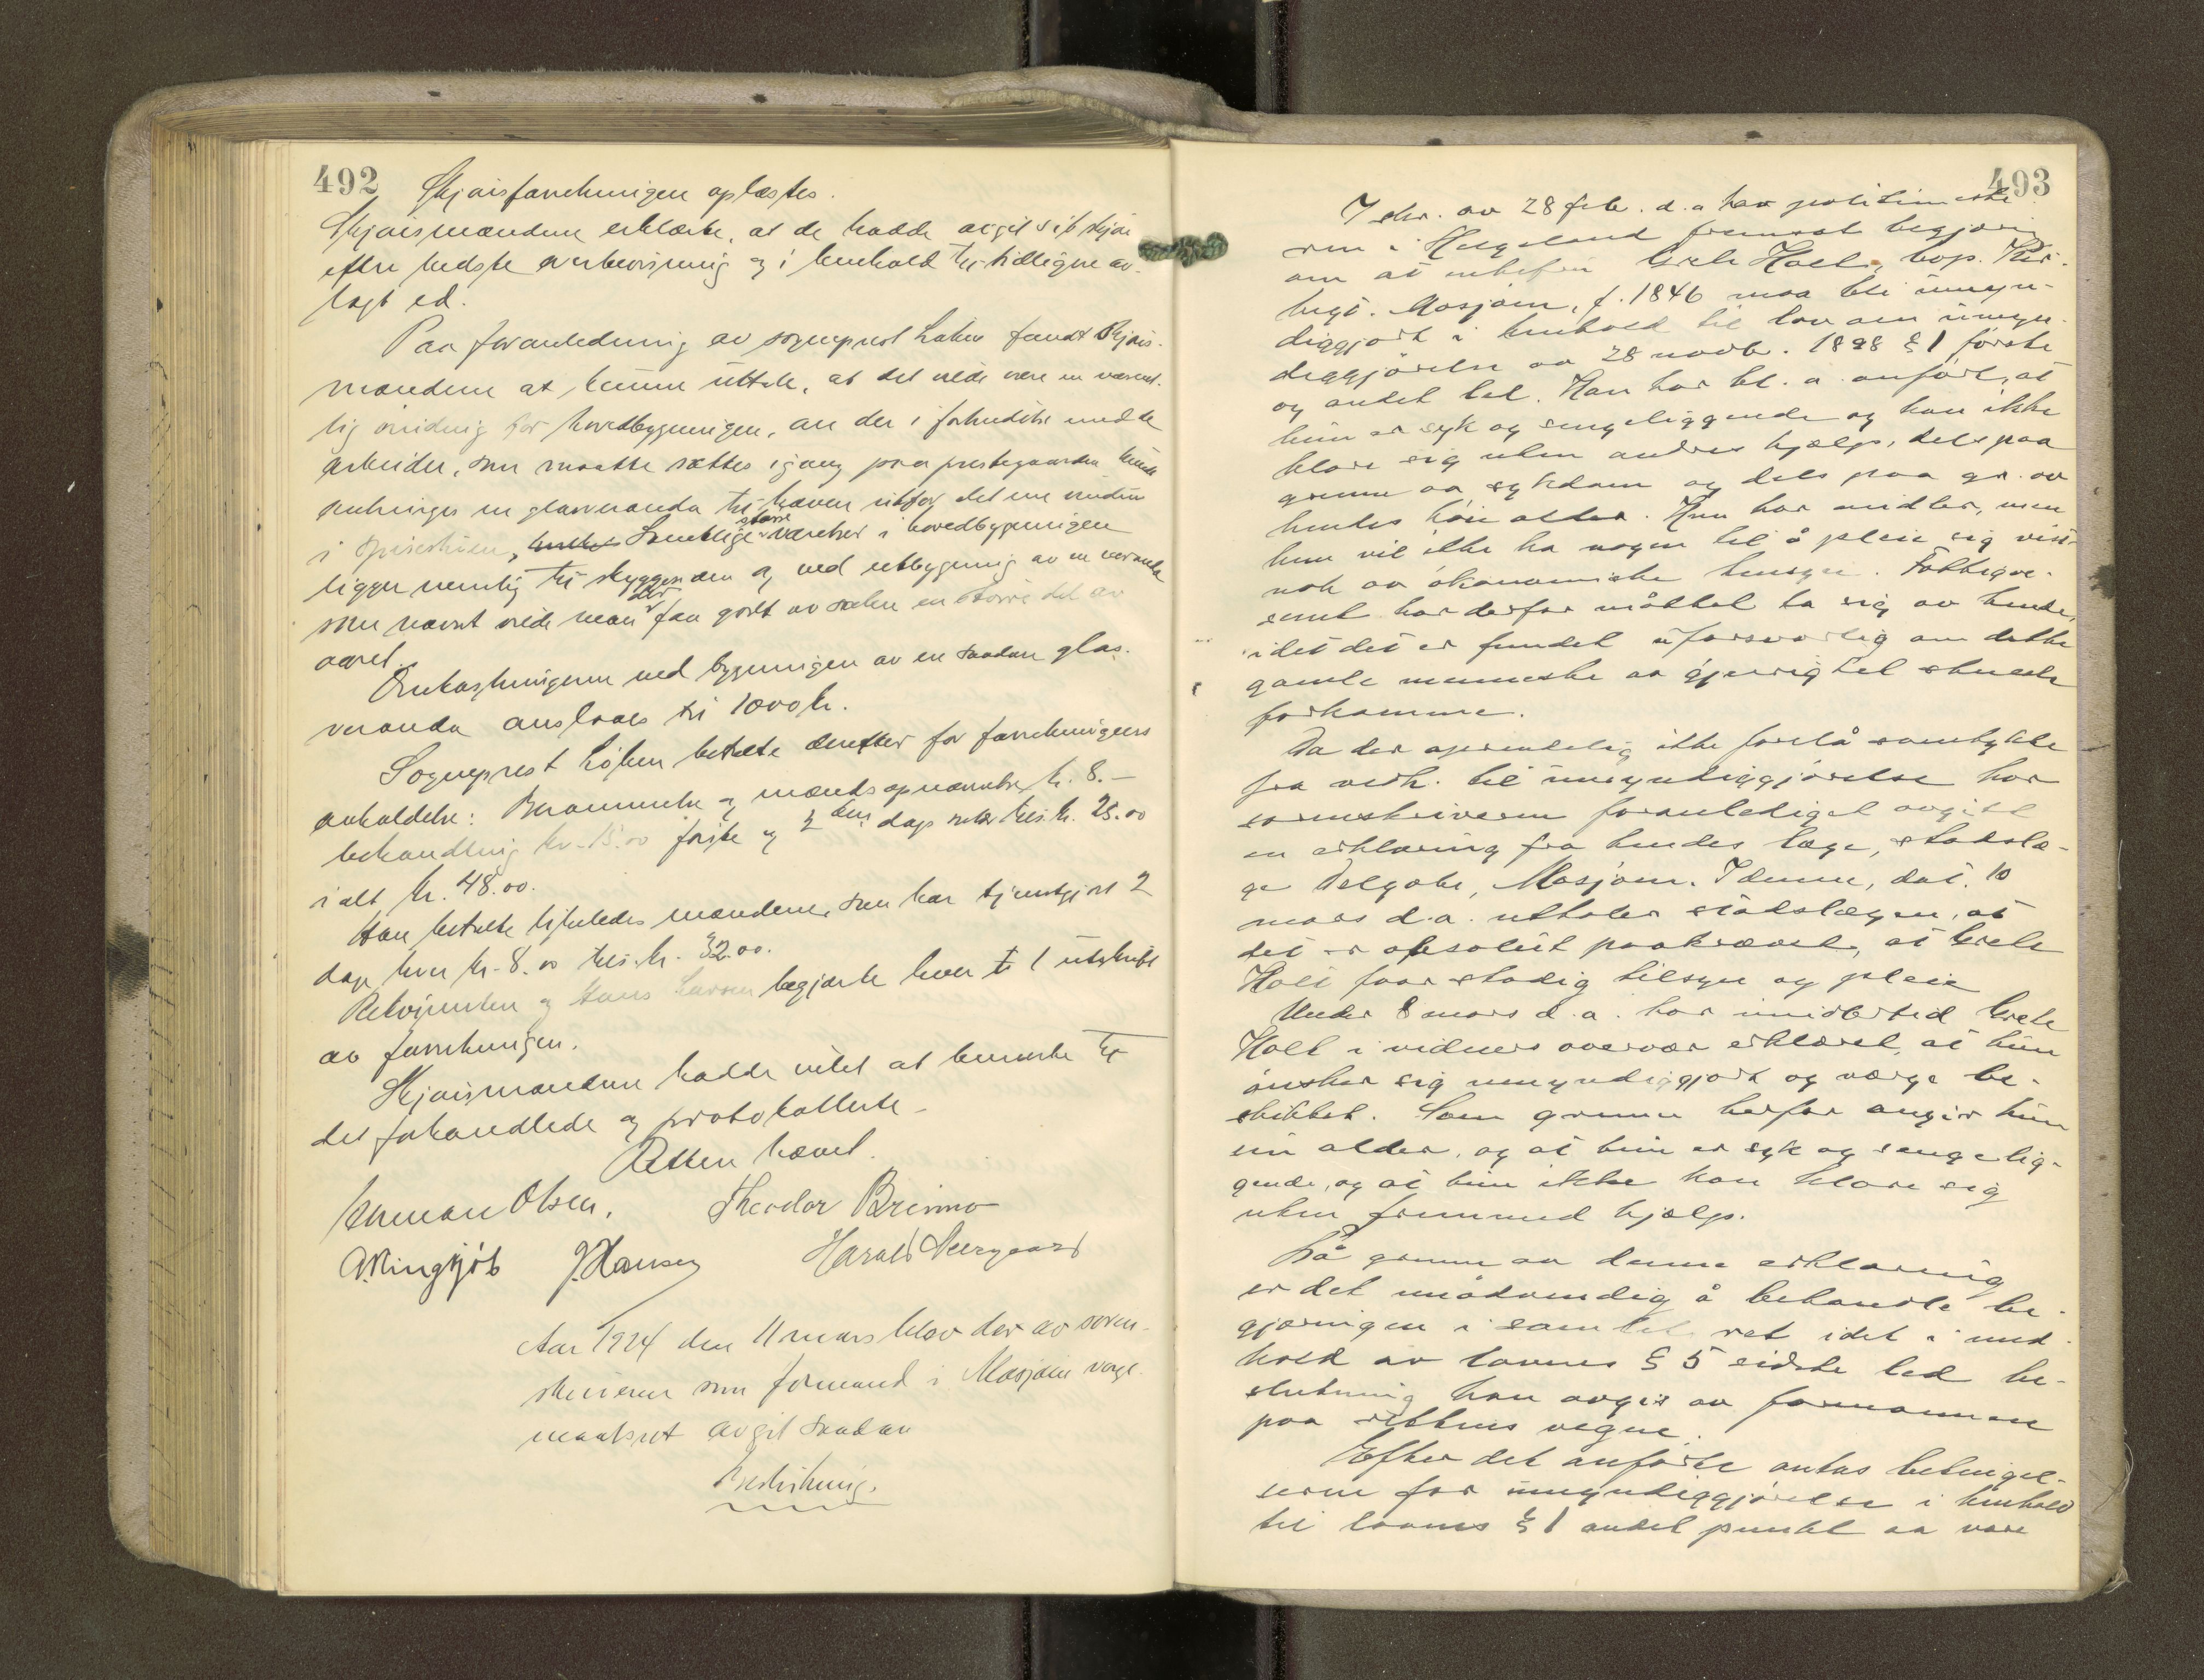 492
Skjønsforretningen oplæstes.
Skjønsmændene erklærte, at de hadde avgit sit skjøn
efter bedste overbevisning og i henhold til tidligere av-
lagt ed.
Paa foranledning av sogneprest Løken fandt skjøns-
mændene at kunne uttale, at det vilde være en væsent-
lig vinding for hovedbygningen, om der i forbindelse med de
arbeider, som maatte sættes igang paa prestegaarden kunde
anbringes en glasveranda til haven utfor det ene vindu
i spisestuen, Samtlige større værelser i hovedbygningen
ligger nemlig til skyggesiden og ved utbygning av en veranda
som nævnt vilde man der faa godt av solen en større del av
aaret.
Omkostningerne ved bygningen av en saadan glas-
veranda anslaaes til 1000 kr.
Sogneprest Løken betalte derefter for forretningens
avholdelse: Berammelse og mænds opnævnelse kr. 8.–
behandling kr. 15.00 første og 2 den dags tils. kr. 25.00
ialt kr. 48.00.
Han betalte likeledes mændene, som har tjenstgjort 2
dage hver kr. 8.00 tils. kr. 32.00.
Rekvirenten og Hans Larsen begjærte hver 1 utskrift
av forretningen.
Skjønsmændene hadde intet at bemerke til
det forhandlede og protokollerte.
Retten hævet.
Herman Olsen. Theodor Brinmo
A. Ringsjøb J. Hansen Harald Neergaard
Aar 1924 den 11 mars blev der av soren-
skriveren som formand i Mosjøen verge-
maalsret avgit saadan
Beslutning.
493
I skr. av 28 feb. d.a. har politimeste-
ren i Helgeland fremsat begjæring
om at ubefæstet Grete Holt, bop. Kir-
kegt. Mosjøen, f. 1846 maa bli umyn-
diggjort i henhold til lov om umyn-
diggjørelse av 28 novbr. 1898 § 1 første
og andet led. Han har bl.a. anført, at
hun er syk og sengeliggende og kan ikke
klare sig uten andres hjælp, dels paa
grunn av sykdom og dels paa gr. av
hendes høie alder. Hun har midler, men
hun vil ikke ha nogen til å pleie sig viss-
nok av økonomiske hensyn. Fattigve-
senet har derfor måttet ta sig av hende,
idet det er fundet uforsvarlig om dette
gamle menneske av gjerrighet skulde
forkomme.
Da der oprindelig ikke forelå samtykke
fra vedk. til umyndiggjørelse har
sorenskriveren foranlediget avgitt
en erklæring fra hendes læge, stadslæ-
ge Delgobe, Mosjøen. I denne, dat. 10
mars d.a. uttaler stadslægen, at
det er absolut paakrævet, at Grete
Holt faar stadig tilsyn og pleie
Under 8 mars d.a. har imidlertid Grete
Holt i vidners overvær erklæret, at hun
ønsker sig umyndiggjort og værge be-
skikket. Som grunn herfor angir hun
sin alder, og at hun er syk og sengelig-
gende, og at hun ikke kan klare sig
uten fremmed hjælp.
På grunn av denne erklæring
er det unødvendig å behandle be-
gjæringen i samlet ret idet i med-
hold av lovens § 5 sidste led be-
slutning kan avgis av formannen
paa rettens vegne.
Efter det anførte antas betingel-
serne for umyndiggjørelse i henhold
til lovens § 1 andet punkt aa være